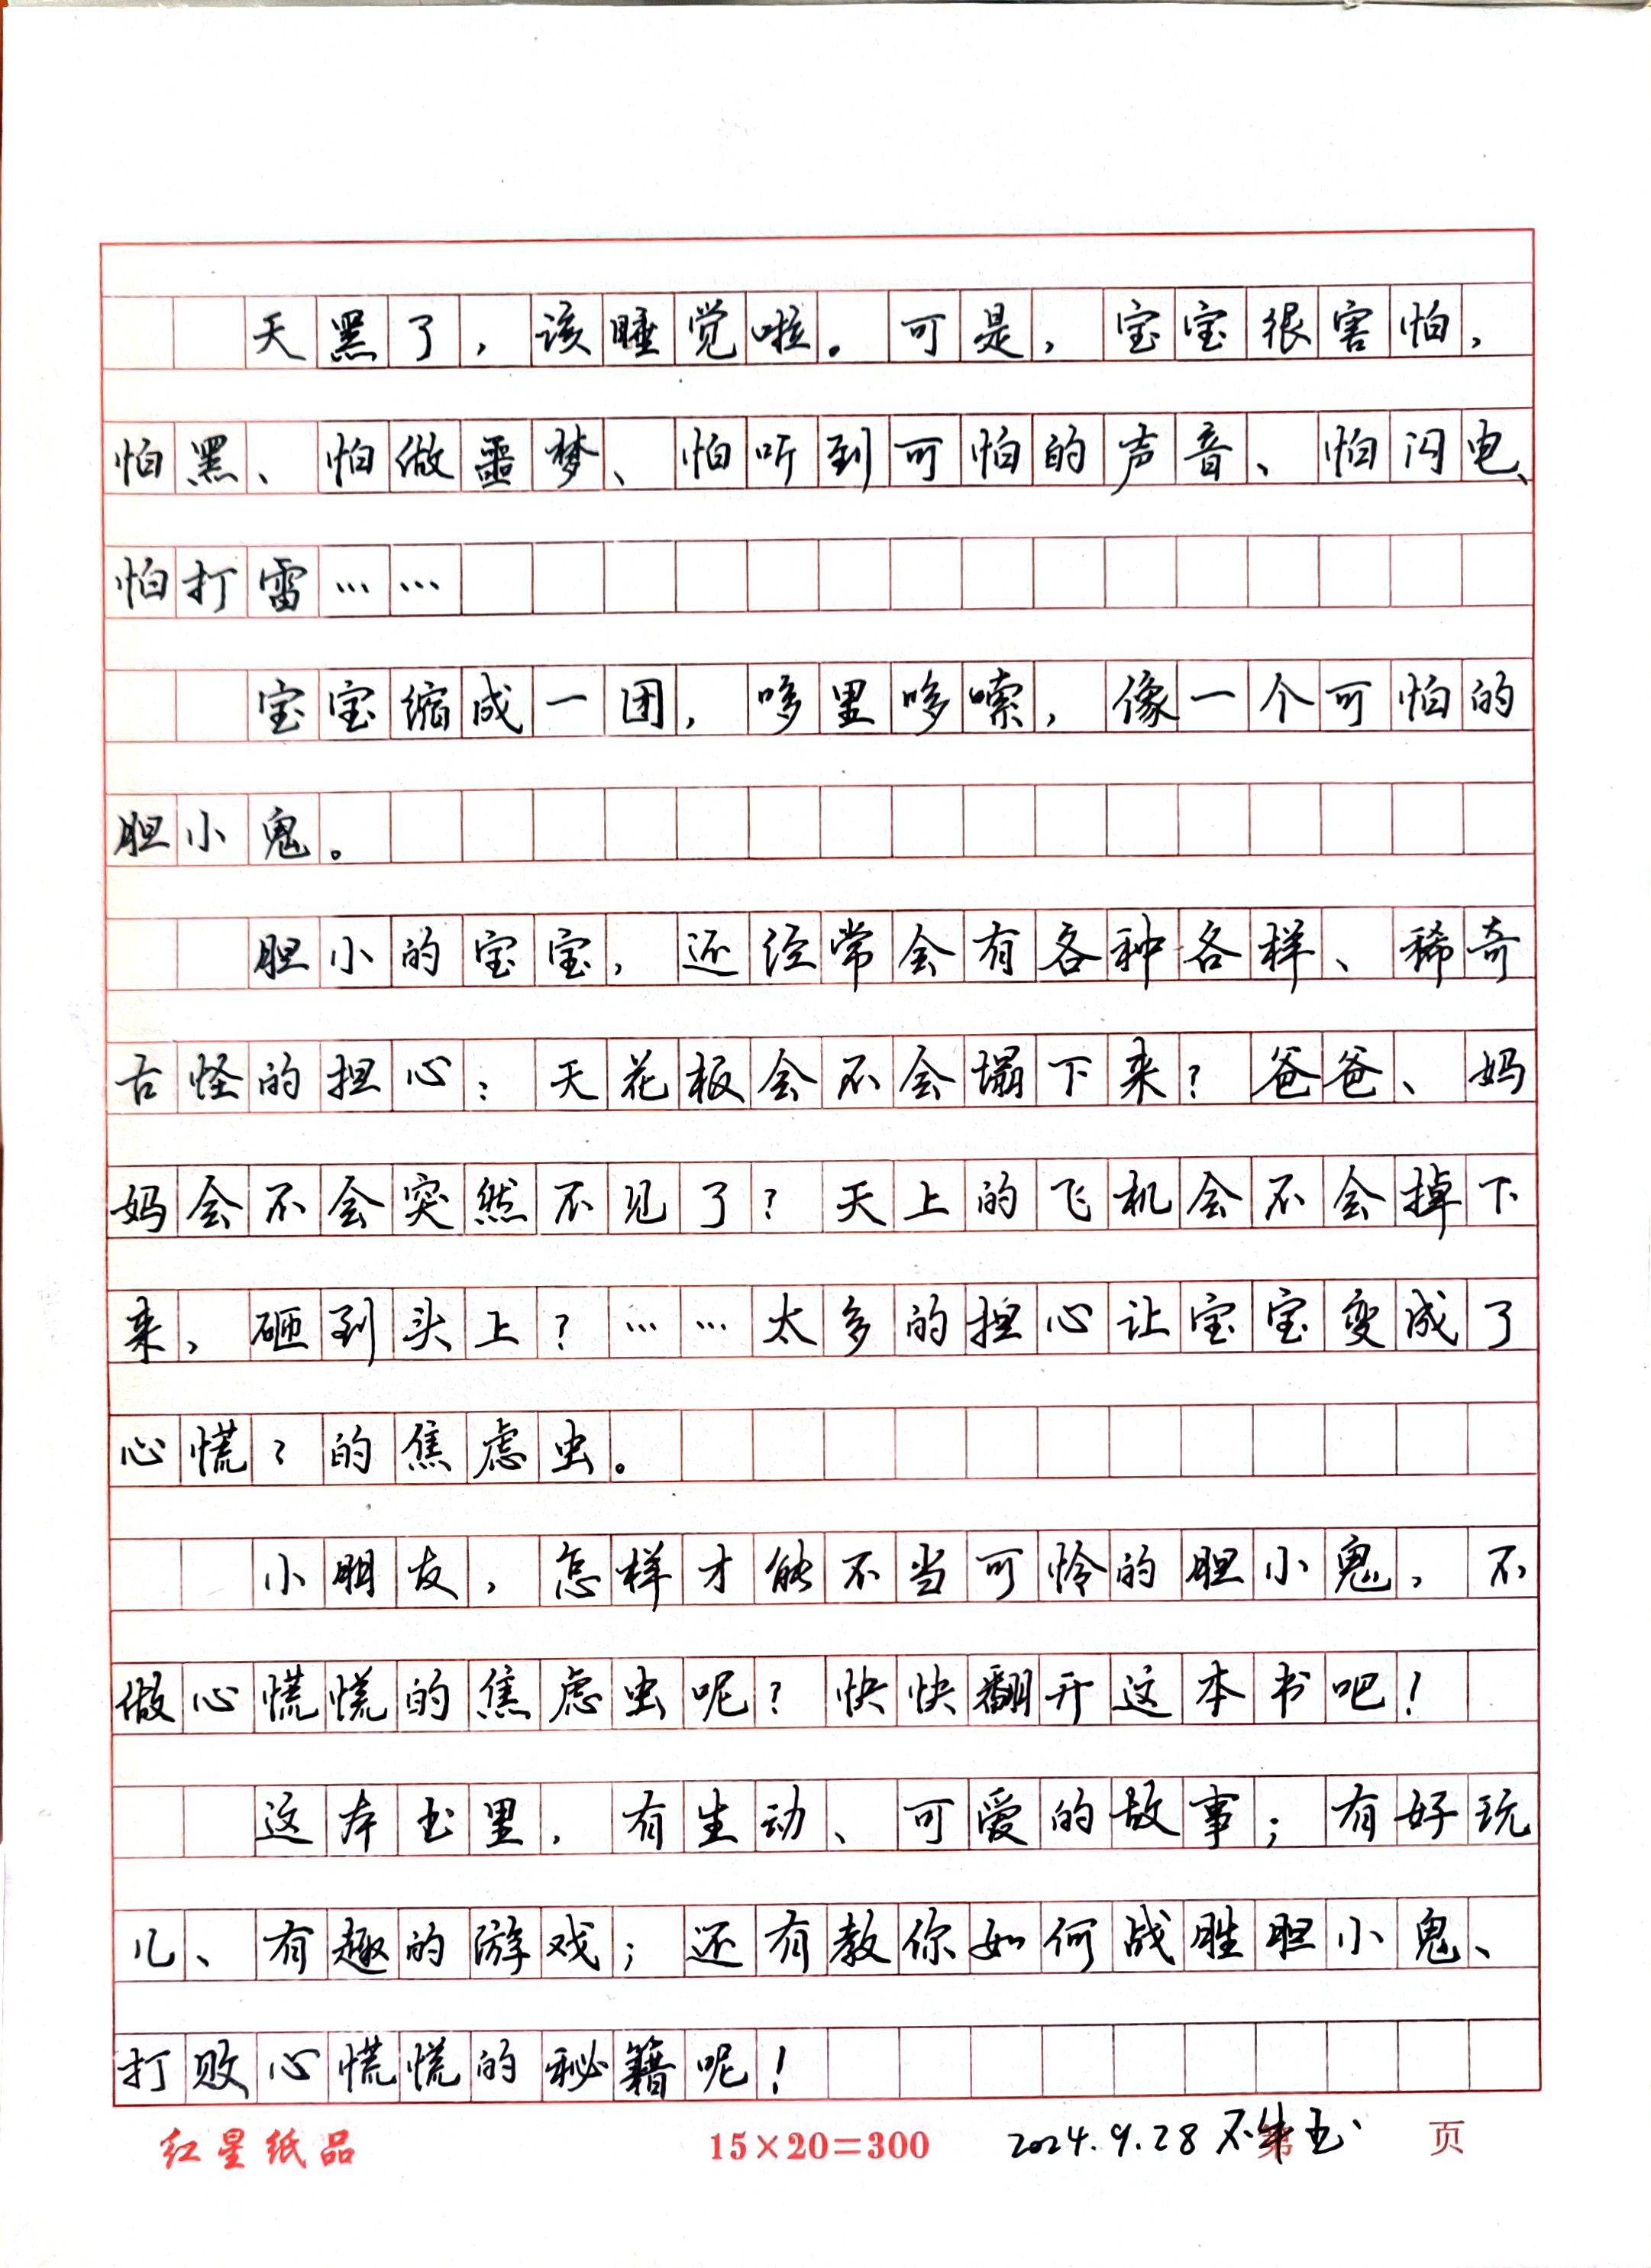 天黑了，该睡觉啦。可是，宝宝很害怕，
怕黑、怕做噩梦、怕听到可怕的声音、怕闪电、
怕打雷……
宝宝缩成一团，哆里哆嗦，像一个可怕的
胆小鬼。
胆小的宝宝，还经常会有各种各样、稀奇
古怪的担心：天花板会不会塌下来？爸爸、妈
妈会不会突然不见了？天上的飞机会不会掉下
来，砸到头上？……太多的担心让宝宝变成了
心慌々的焦虑虫。
小朋友，怎样才能不当可怜的胆小鬼，不
做心慌慌的焦虑虫呢？快快翻开这本书吧！
这本书里，有生动、可爱的故事；有好玩
儿、有趣的游戏；还有教你如何战胜胆小鬼、
打败心慌慌的秘籍呢！
红星纸品 15×20=300 2024.9.28 第 页